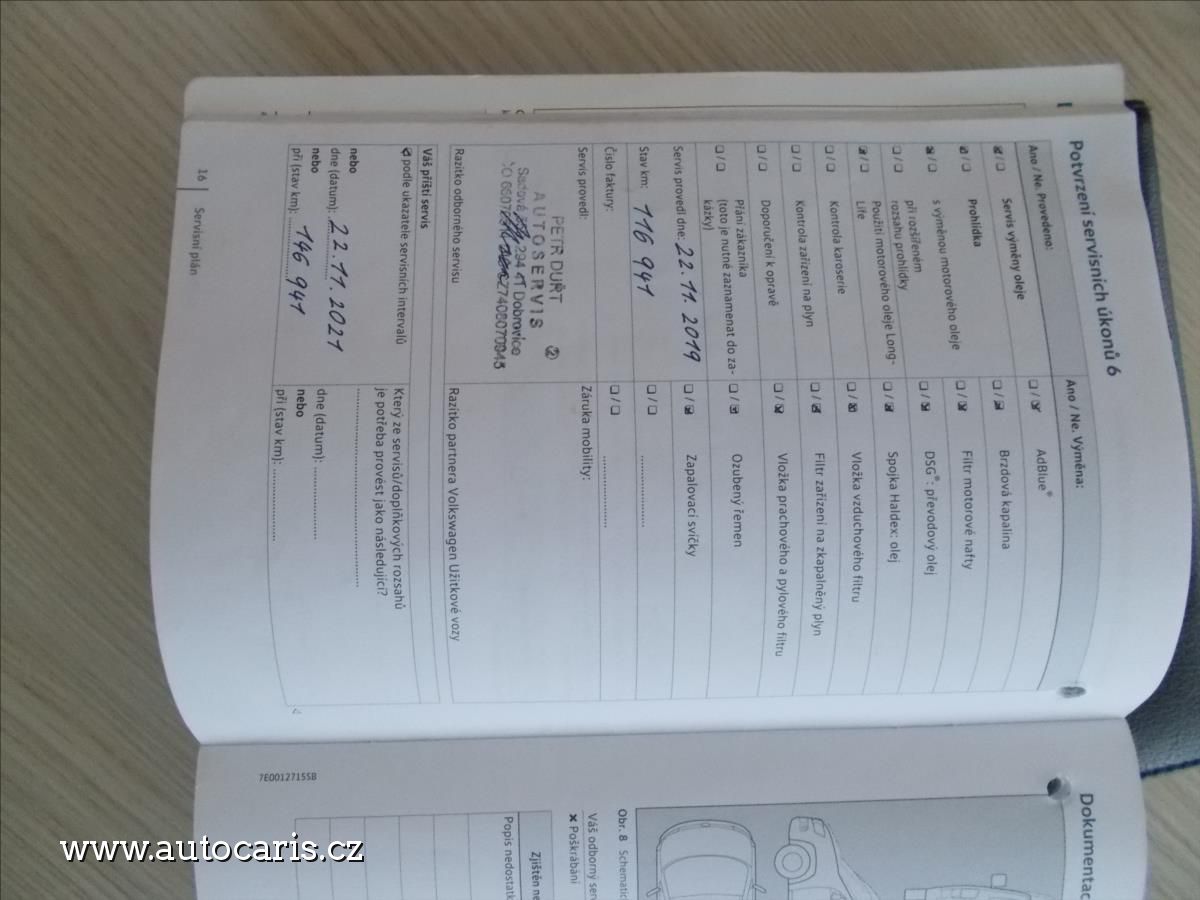 Potvrzení servisních úkonů 6
Ano / Ne. Provedeno:
❑ / ❑ Servis výměny oleje
❑ / ❑ Prohlídka
❑ / ❑ s výměnou motorového oleje
❑ / ❑ při rozšířeném
rozsahu prohlídky
❑ / ❑ Použití motorového oleje Long-
Life
❑ / ❑ Kontrola karoserie
❑ / ❑ Kontrola zařízení na plyn
❑ / ❑ Doporučení k opravě
❑ / ❑ Přání zákazníka
(toto je nutné zaznamenat do za-
kázky)
Servis provedl dne: 22.11.2019
Stav km: 116 941
Číslo faktury:
Ano / Ne. Výměna:
❑ / ❑ AdBlue®
❑ / ❑ Brzdová kapalina
❑ / ❑ Filtr motorové nafty
❑ / ❑ DSG®: převodový olej
❑ / ❑ Spojka Haldex: olej
❑ / ❑ Vložka vzduchového filtru
❑ / ❑ Filtr zařízení na zkapalněný plyn
❑ / ❑ Vložka prachového a pylového filtru
❑ / ❑ Ozubený řemen
❑ / ❑ Zapalovací svíčky
❑ / ❑ ....................
❑ / ❑ ....................
Servis provedl:
PETR DUŘT
AUTOSERVIS ②
Sadová 294 41 Dobrovice
Razítko odborného servisu
Záruka mobility:
Razítko partnera Volkswagen Užitkové vozy
Váš příští servis
❑ podle ukazatele servisních intervalů
nebo
dne (datum): 22.11.2021
nebo
při (stav km): 146 941
Který ze servisů/doplňkových rozsahů
je potřeba provést jako následující?
........................................
dne (datum): ....................
nebo
při (stav km): ....................
16 Servisní plán
Dokumentac
Obr. 8 Schematic
Váš odborný ser
✘ Poškrábání
Zjištěn ne
Popis nedostatk
7E0012715SB
www.autocaris.cz